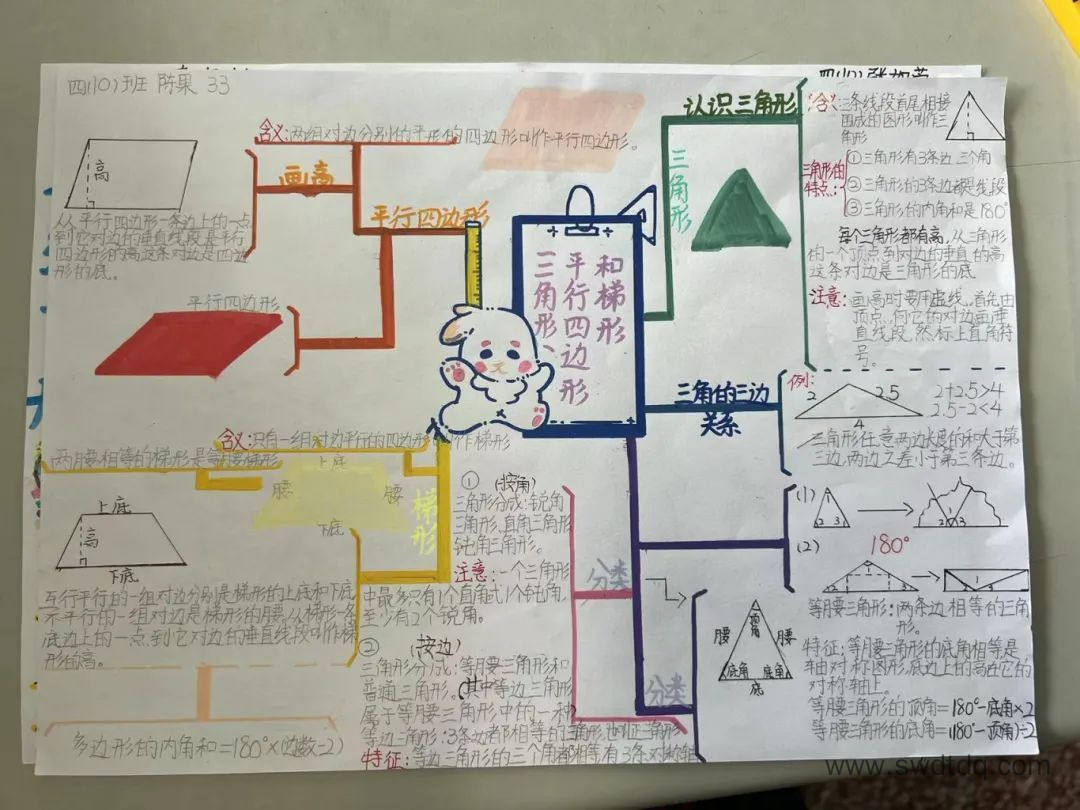 四(10)班 陈果 33
含义:两组对边分别的平形的四边形叫作平行四边形。
画高
平行四边形
高
从平行四边形一条边上的一点
到它对边的垂直线段是平行
四边形的高这条对边是四边
形的底。
平行四边形
和梯形
平行四边形
三角形、
认识三角形
三角形
含义:三条线段首尾相接
围成的图形叫作三
角形
三角形的
特点:
①三角形有3条边 三个角
②三角形的3条边都是线段
③三角形的内角和是180°
每个三角形都有高,从三角形
的一个顶点到对边的垂直的高
这条对边是三角形的底
注意:画高时要用虚线,首先由
顶点向它的对边画垂
直线段,然标上直角符
号。
三角的三边
关系
例:
2
2.5
4
2+2.5>4
2.5-2<4
三角形任意两边长度的和大于第
三边,两边之差小于第三条边。
(1)
2 3
1
2 3
(2)
180°
含义:只有一组对边平行的四边形叫作梯形
两月要相等的梯形是等腰梯形
上底
腰
腰
下底
梯形
上底
高
下底
互行平行的一组对边分别是梯形的上底和下底
不平行的一组对边是梯形的腰,从梯形一条
底边上的一点到它对边的垂直线段叫作梯
形的高。
多边形的内角和=180°×(边数-2)
① (按角)
三角形分成:锐角
三角形、直角三角形
钝角三角形。
注意:一个三角形
中最多只有1个直角或1个钝角,
至少有2个锐角。
② (按边)
三角形分成:等腰三角形和
普通三角形。(其中等边三角形
属于等腰三角形中的一种
等边三角形:3条边都相等的三角形,也叫正三角形
特征:等边三角形的三个角都相等,有3条对称轴
分类
分类
顶角
腰
腰
底角
底角
底
等腰三角形:两条边相等的三角
形。
特征:等腰三角形的底角相等是
轴对称图形,底边上的高在它的
对称轴上。
等腰三角形的顶角=180°-底角×2
等腰三角形的底角=(180°-顶角)÷2
www.swdtdq.com